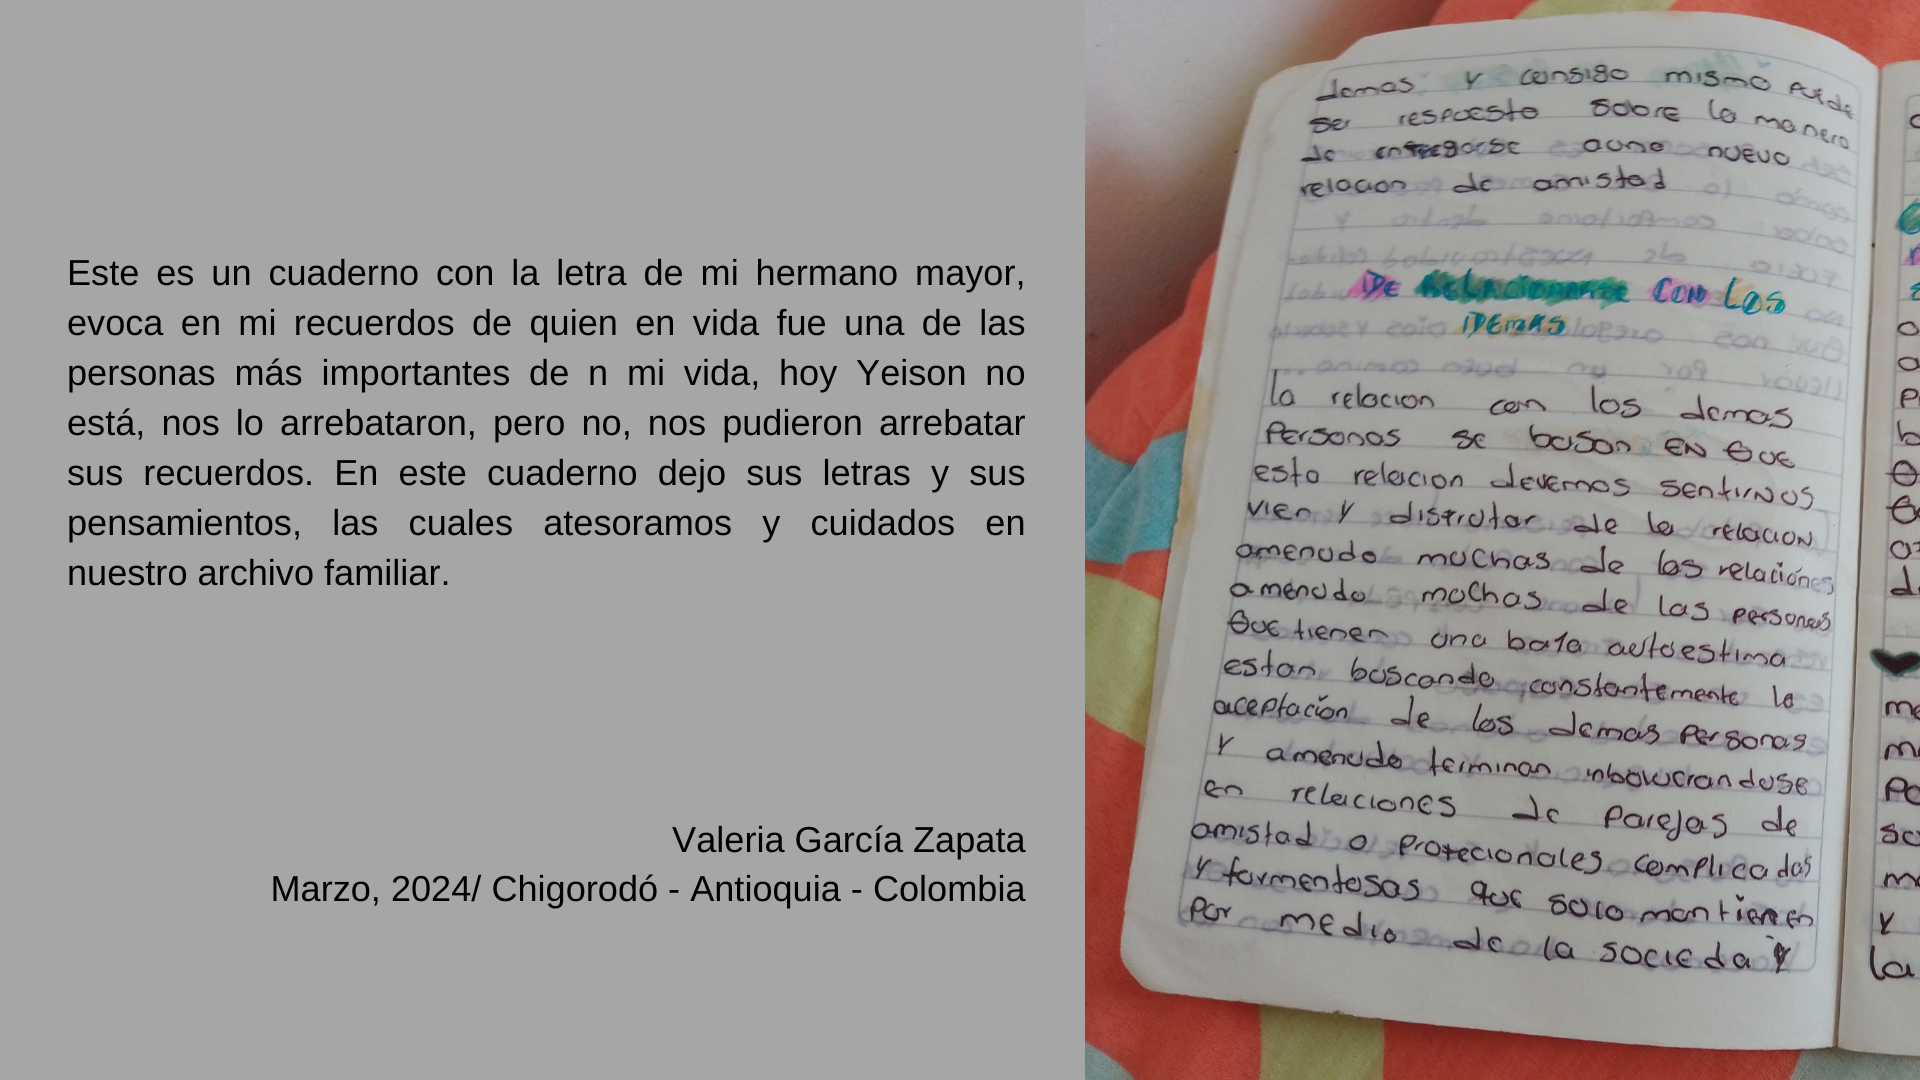 Este es un cuaderno con la letra de mi hermano mayor,
evoca en mi recuerdos de quien en vida fue una de las
personas más importantes de n mi vida, hoy Yeison no
está, nos lo arrebataron, pero no, nos pudieron arrebatar
sus recuerdos. En este cuaderno dejo sus letras y sus
pensamientos, las cuales atesoramos y cuidados en
nuestro archivo familiar.
Valeria García Zapata
Marzo, 2024/ Chigorodó - Antioquia - Colombia
demas y consigo mismo puede
ser respuesta sobre la manera
de entregarse auna nueva
relacion de amistad
De Relacionarse Con Los
Demas
la relacion con los demas
Personas se basan EN que
esta relacion devemos sentirnos
vien y disfrutar de la relacion
amenudo muchas de las relaciones
amenudo muchas de las personas
que tienen una baja autoestima
estan buscando constantemente la
aceptación de los demas personas
y amenudo terminan inbolucrandose
en relaciones de parejas de
amistad o profecionales complicadas
y tormentosas que solo mantienen
por medio de la socieda y